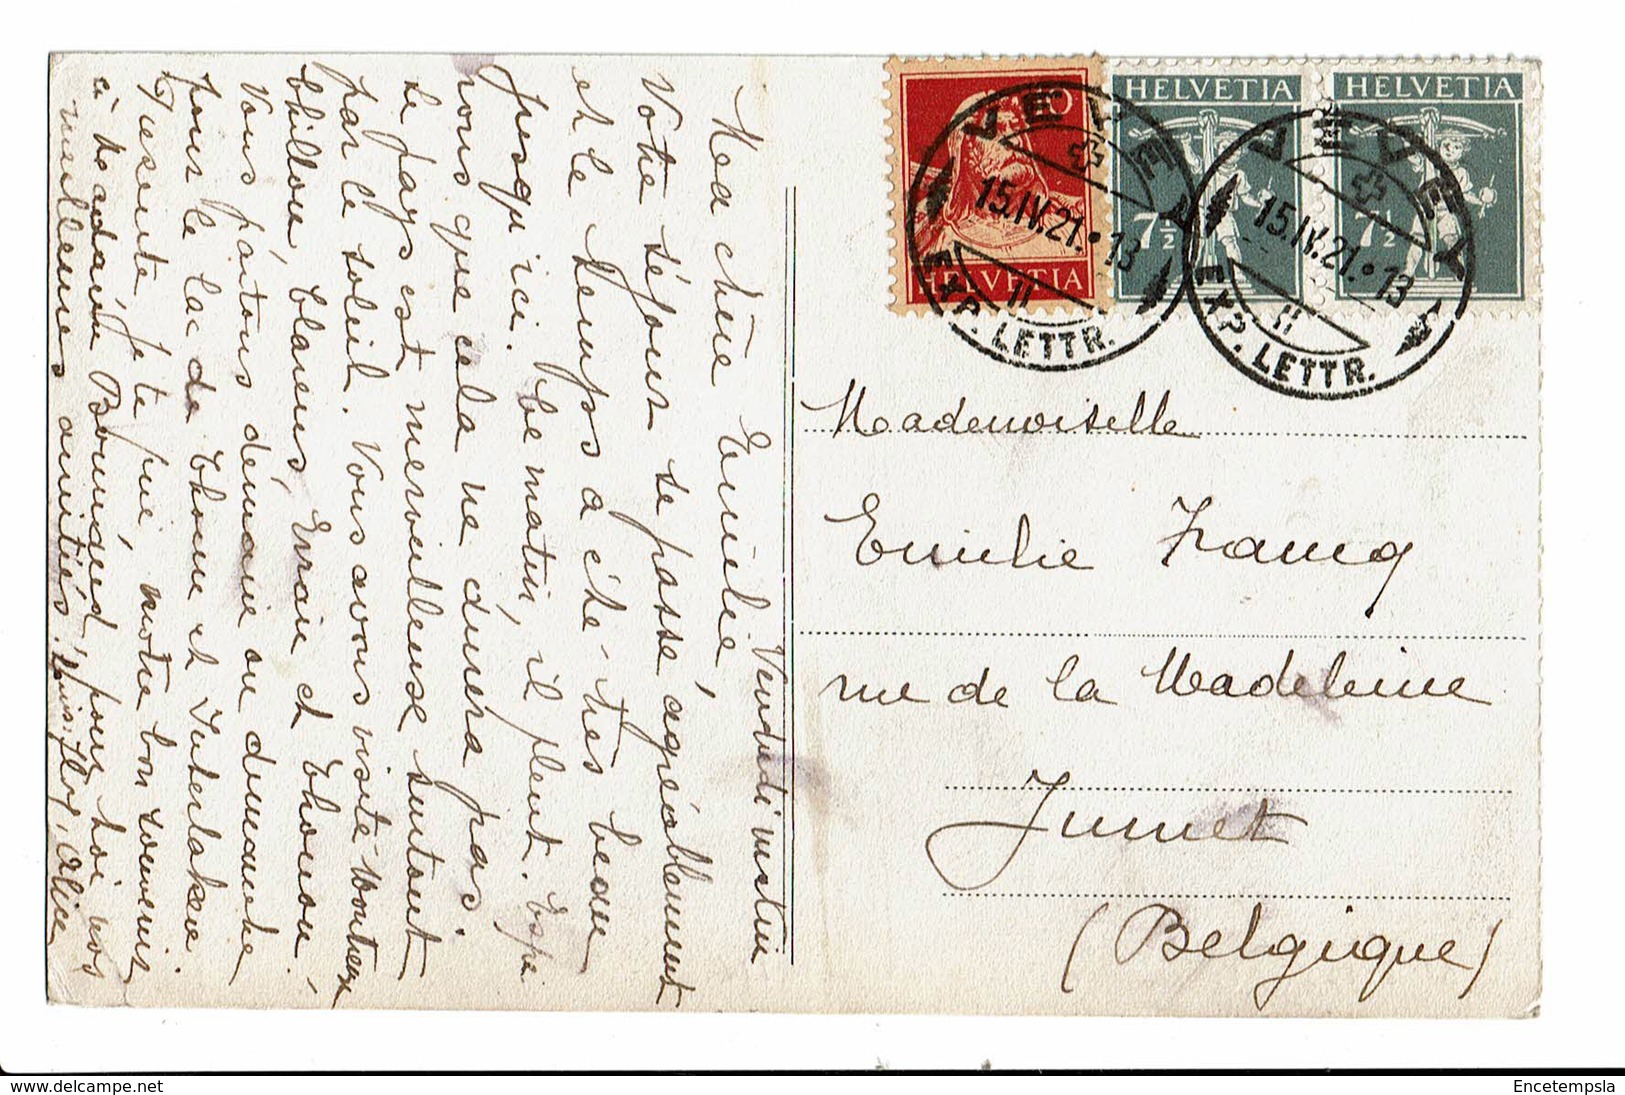 Vendredi matin
Ma chère Emilie,
Votre séjour se passe agréablement
et le temps a été très beau
jusqu'ici. Ce matin, il pleut. Espé
rons que cela ne durera pas.
Le pays est merveilleux surtout
par le soleil. Vous avons visité Montreux
Chillon, Clarens, Evian et Thonon.
Vous partons demain ou dimanche
pour le lac de Thoune et Interlaken.
Présente, je te prie, notre bon souvenir
à Madame Bounded, pour toi nos
meilleures amitiés. Alice
HELVETIA
10
HELVETIA
7½
HELVETIA
7½
VEVEY
15.IV.21.13
II
EXP. LETTR.
VEVEY
15.IV.21.13
II
EXP. LETTR.
Mademoiselle
Emilie Francq
rue de la Madeleine
Jumet
(Belgique)
http://www.delcampe.net
Encetempsla